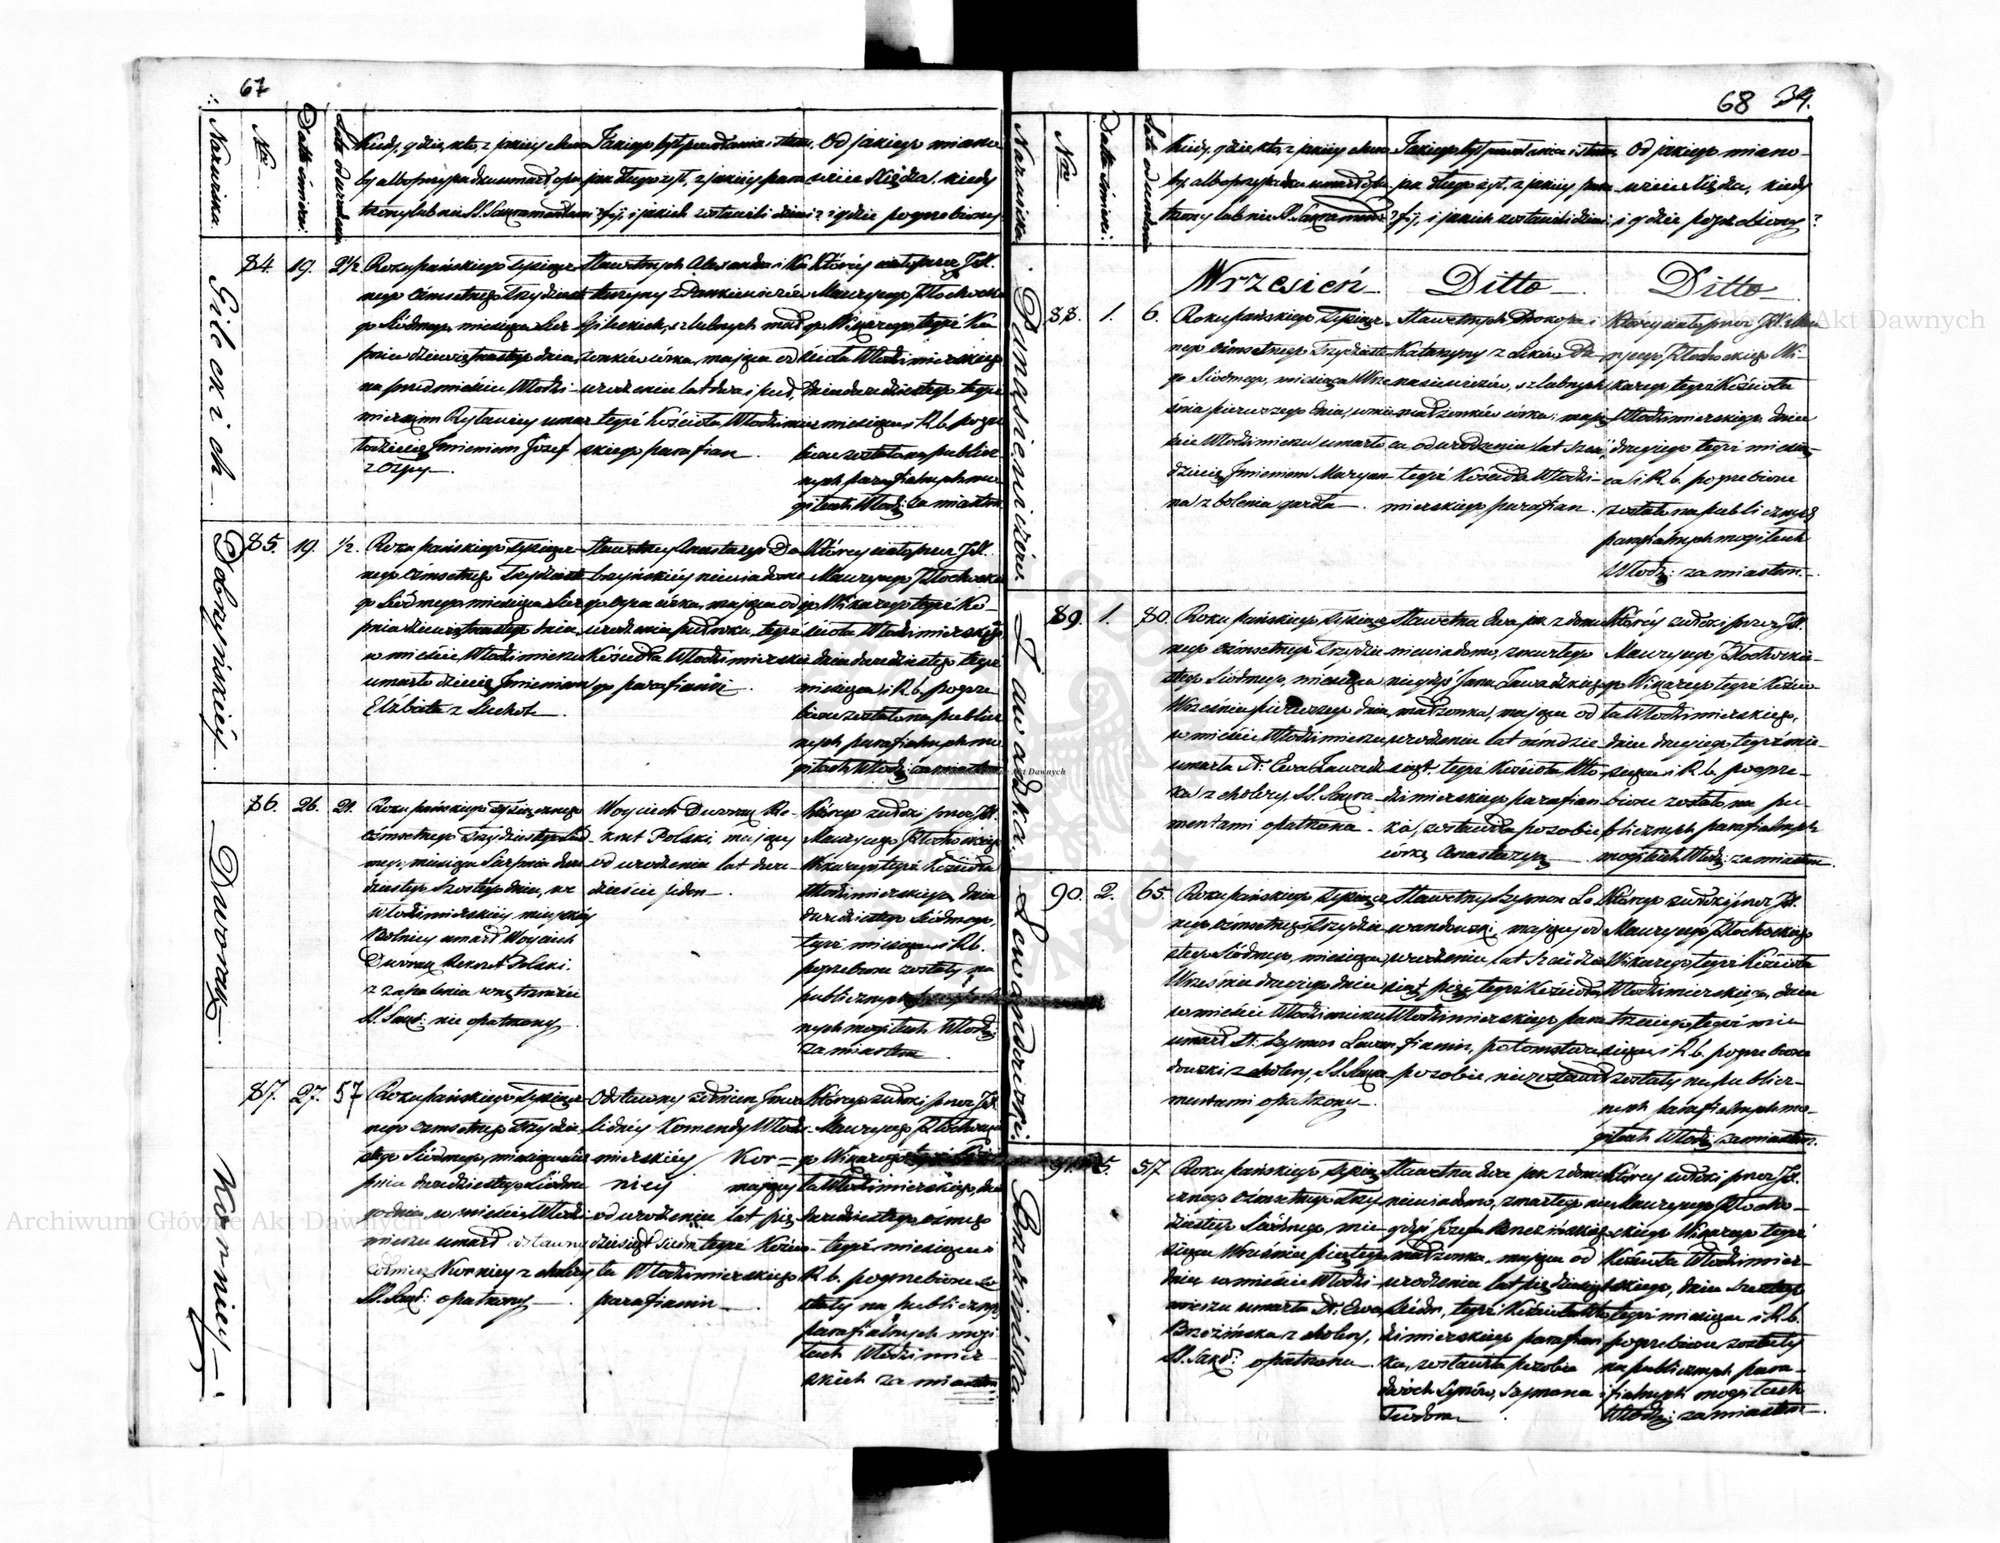 67
Nazwiska.
Nro
Data śmierci
Lata od urodzenia
Kiedy, gdzie, kto, z jakiey choro
by albo przypadku umarł opa
trzony lub nie SS. Sakramentami?
Jakiego był powołania i stanu,
jak długo żył, z jakiéy para
fij, i jakich zostawił dzieci?
Od jakiego miano
wicie Xiędza, kiedy
i gdzie pogrzebiony
Gileckich
84. 19. 2½
Roku pańskiego tysiącz
nego ośmsetnego trzydzieste
go Siódmego, miesiąca Sier
pnia dziewiętnastego dnia
na przedmieściu Włodzi-
mierskim Rylawicy umar
ło dziecię Jmieniem Józef
z ospy.
Sławetnych Alexandra i Ka
tarzyny z Pankiewiczów
Gileckich, szlubnych mał
żonków córka, mająca od
urodzenia lat dwa i puł,
tegoż Kościoła Włodzimier
skiego parafian.
Któréy ciało przez JX.
Maurycego Płochocka
go Wikarego tegoż Ko
ścioła Włodzimierskiego
dnia dwudziestego tegoż
miesiąca i R. b. pogrze
bione zostało na publicz
nych parafialnych mo
giłach Włodz: za miastem
Dobrzyńskiéy
85. 19. ½.
Roku pańskiego tysiącz
nego ośmsetnego Trzydzieste
go Siódmego miesiąca Sier
pnia dziewiętnastego dnia,
w mieście Włodzimierzu
umarło dziecię Jmieniem
Elżbieta z Suchot.
Sławetney Anastazyi Do
brzyńskiéy niewiadome
go ojca córka, mająca od
urodzenia pułroku, tegoż
Kościoła Włodzimierskie
go parafianki.
Któréy ciało przez JX.
Maurycego Płochocka
go Wikarego tegoż Ko-
ścioła Włodzimierskiego
dnia dwudziestego tegoż
miesiąca i R. b. pogrze
bione zostało na publicz
nych parafialnych mo
giłach Włodz: za miastem
Dworak
86. 26. 21.
Roku pańskiego tysiącznego
ośmsetnego trzydziestego Siód
mego, miesiąca Sierpnia dwu
dziestego Szóstego dnia, we
Włodzimierskiéy mieyskiéy
Bolnicy umarł Woyciech
Dworak Rekrut Polski.
z zapalenia wnętrzności
SS. Sakr: nie opatrzony
Woyciech Dworak Re-
krut Polski, mający
od urodzenia lat dwa-
dzieście jeden.
Którego zwłoki przez JX.
Maurycego Płochockiego
Wikarego tegoż Kościoła
Włodzimierskiego, dnia
dwudziestego Siódmego,
tegoż miesiąca i R. b.
pogrzebione zostały na
publicznych
nych mogiłach Włodz:
za miastem
Korniey
87. 27. 57
Roku pańskiego Tysiącz
nego ośmsetnego Trzydzie
stego Siódmego, miesiąca Sier
pnia dwudziestego Siódme
go dnia, w mieście Włodzi
mierzu umarł odstawny
żołnierz Korniey z cholery
SS. Sakr: opatrzony
Odstawny żołnierz Jnwa
lidney Komendy Włodzi-
mierskiey Kor=
niey mający
od urodzenia lat pięć
dziesiąt siedm, tegoż Kościo
ła Włodzimierskiego
parafianin
Którego zwłoki przez JX.
Maurycego Płochockie
go Wikarego
ła Włodzimierskiego, dnia
dwudziestego ósmego
tegoż miesiąca i
R. b. pogrzebione zo
stały na publicznych
parafialnych mogi
łach Włodzimier
skich za miastem
68 34.
Nazwiska
Nro
Data śmierci.
Lata od urodzenia
Kiedy, gdzie, kto, z jakiéy choro
by, albo przypadku umarł opa
trzony lub nie SS. Sakramentami?
Jakiego był powołania i stanu,
jak długo żył, z jakiéy para
fij, i jakich zostawił dzieci
Od jakiego miano-
wicie Xiędza, kiedy
i gdzie pogrzebiony?
Wrzesień Ditto Ditto
88. 1. 6.
Roku pańskiego Tysiącz
nego ośmsetnego Trzydzieste
go Siódmego, miesiąca Wrze
śnia pierwszego dnia, w mie
ście Włodzimierzu umarło
dziecię Jmieniem Maryan
na z bolenia gardła
Sławetnych Prokopa i
Katarzyny z
nasiewiczów, szlubnych
małżonków córka; mają
ca od urodzenia lat sześć,
tegoż Kościoła Włodzi-
mierskiego parafian.
Któréy ciało przez JX. Mau
rycego Płochockiego Wi-
karego tegoż Kościoła
Włodzimierskiego dnia
drugiego tegoż miesią
ca i R. b. pogrzebione
zostało na publicznych
parafialnych mogiłach
Włodz: za miastem.
Zawadzka.
89. 1. 80.
Roku pańskiego Tysiącz
nego ośmsetnego trzydzie
stego Siódmego, miesiąca
Września pierwszego dnia,
w mieście Włodzimierzu
umarła St: Ewa Zawadz
ka z cholery SS. Sakra
mentami opatrzona.
Sławetna Ewa jak z domu
niewiadomo, zmarłego
niegdyś Jana Zawadzkiego
małżonka, mająca od
urodzenia lat ośmdzie
siąt, tegoż Kościoła Wło
dzimierskiego parafian
ka, zostawiła po sobie
córkę Anastazyą
Któréy zwłoki przez JX.
Maurycego Płochockie-
go Wikarego tegoż Kościo
ła Włodzimierskiego,
dnia drugiego tegoż mie-
siąca i R. b. pogrze-
bione zostało na pu-
blicznych parafialnych
mogiłach Włodz: za miastem
Lewandowski.
90. 2. 65.
Roku pańskiego Tysiącz
nego ośmsetnego Trzydzie
stego Siódmego, miesiąca
Września drugiego dnia
w mieście Włodzimierzu
umarł St: Szymon Lewan
dowski, z cholery, SS. Sakra
mentami opatrzony.
Sławetny Szymon Le
wandowski, mający od
urodzenia lat sześćdzie
siąt pięć tegoż Kościoła
Włodzimierskiego para
fianin, potomstwa
po sobie niezostawił
Którego zwłoki przez JX.
Maurycego Płochockiego
Wikarego tegoż Kościoła
Włodzimierskiego, dnia
trzeciego tegoż mie
siąca i R. b. pogrzebione
zostały na publicz-
nych parafialnych mo-
giłach Włodz: za miastem.
Brzezińska.
91. 5. 57.
Roku pańskiego tysią
cznego ośmsetnego Trzy
dziestego Siódmego, mie
siąca Września piątego
dnia w mieście Włodzi
mierzu umarła St: Ewa
Brzezińska, z cholery,
SS. Sakr: opatrzona
Sławetna Ewa jak z domu
niewiadomo, zmarłego nie
gdyś Józefa Brzezińskiego
małżonka, mająca od
urodzenia lat pięćdziesiąt
siedm, tegoż Kościoła Wło
dzimierskiego parafian
ka, zostawiła po sobie
dwóch Synów, Szymona i
Teodora
Któréy zwłoki przez JX.
Maurycego Płocho-
ckiego Wikarego tegoż
Kościoła Włodzimier-
skiego, dnia Szóstego
tegoż miesiąca i R. b.
pogrzebione zostały
na publicznych para-
fialnych mogiłach
Włodz: za miastem
Archiwum Główne Akt Dawnych